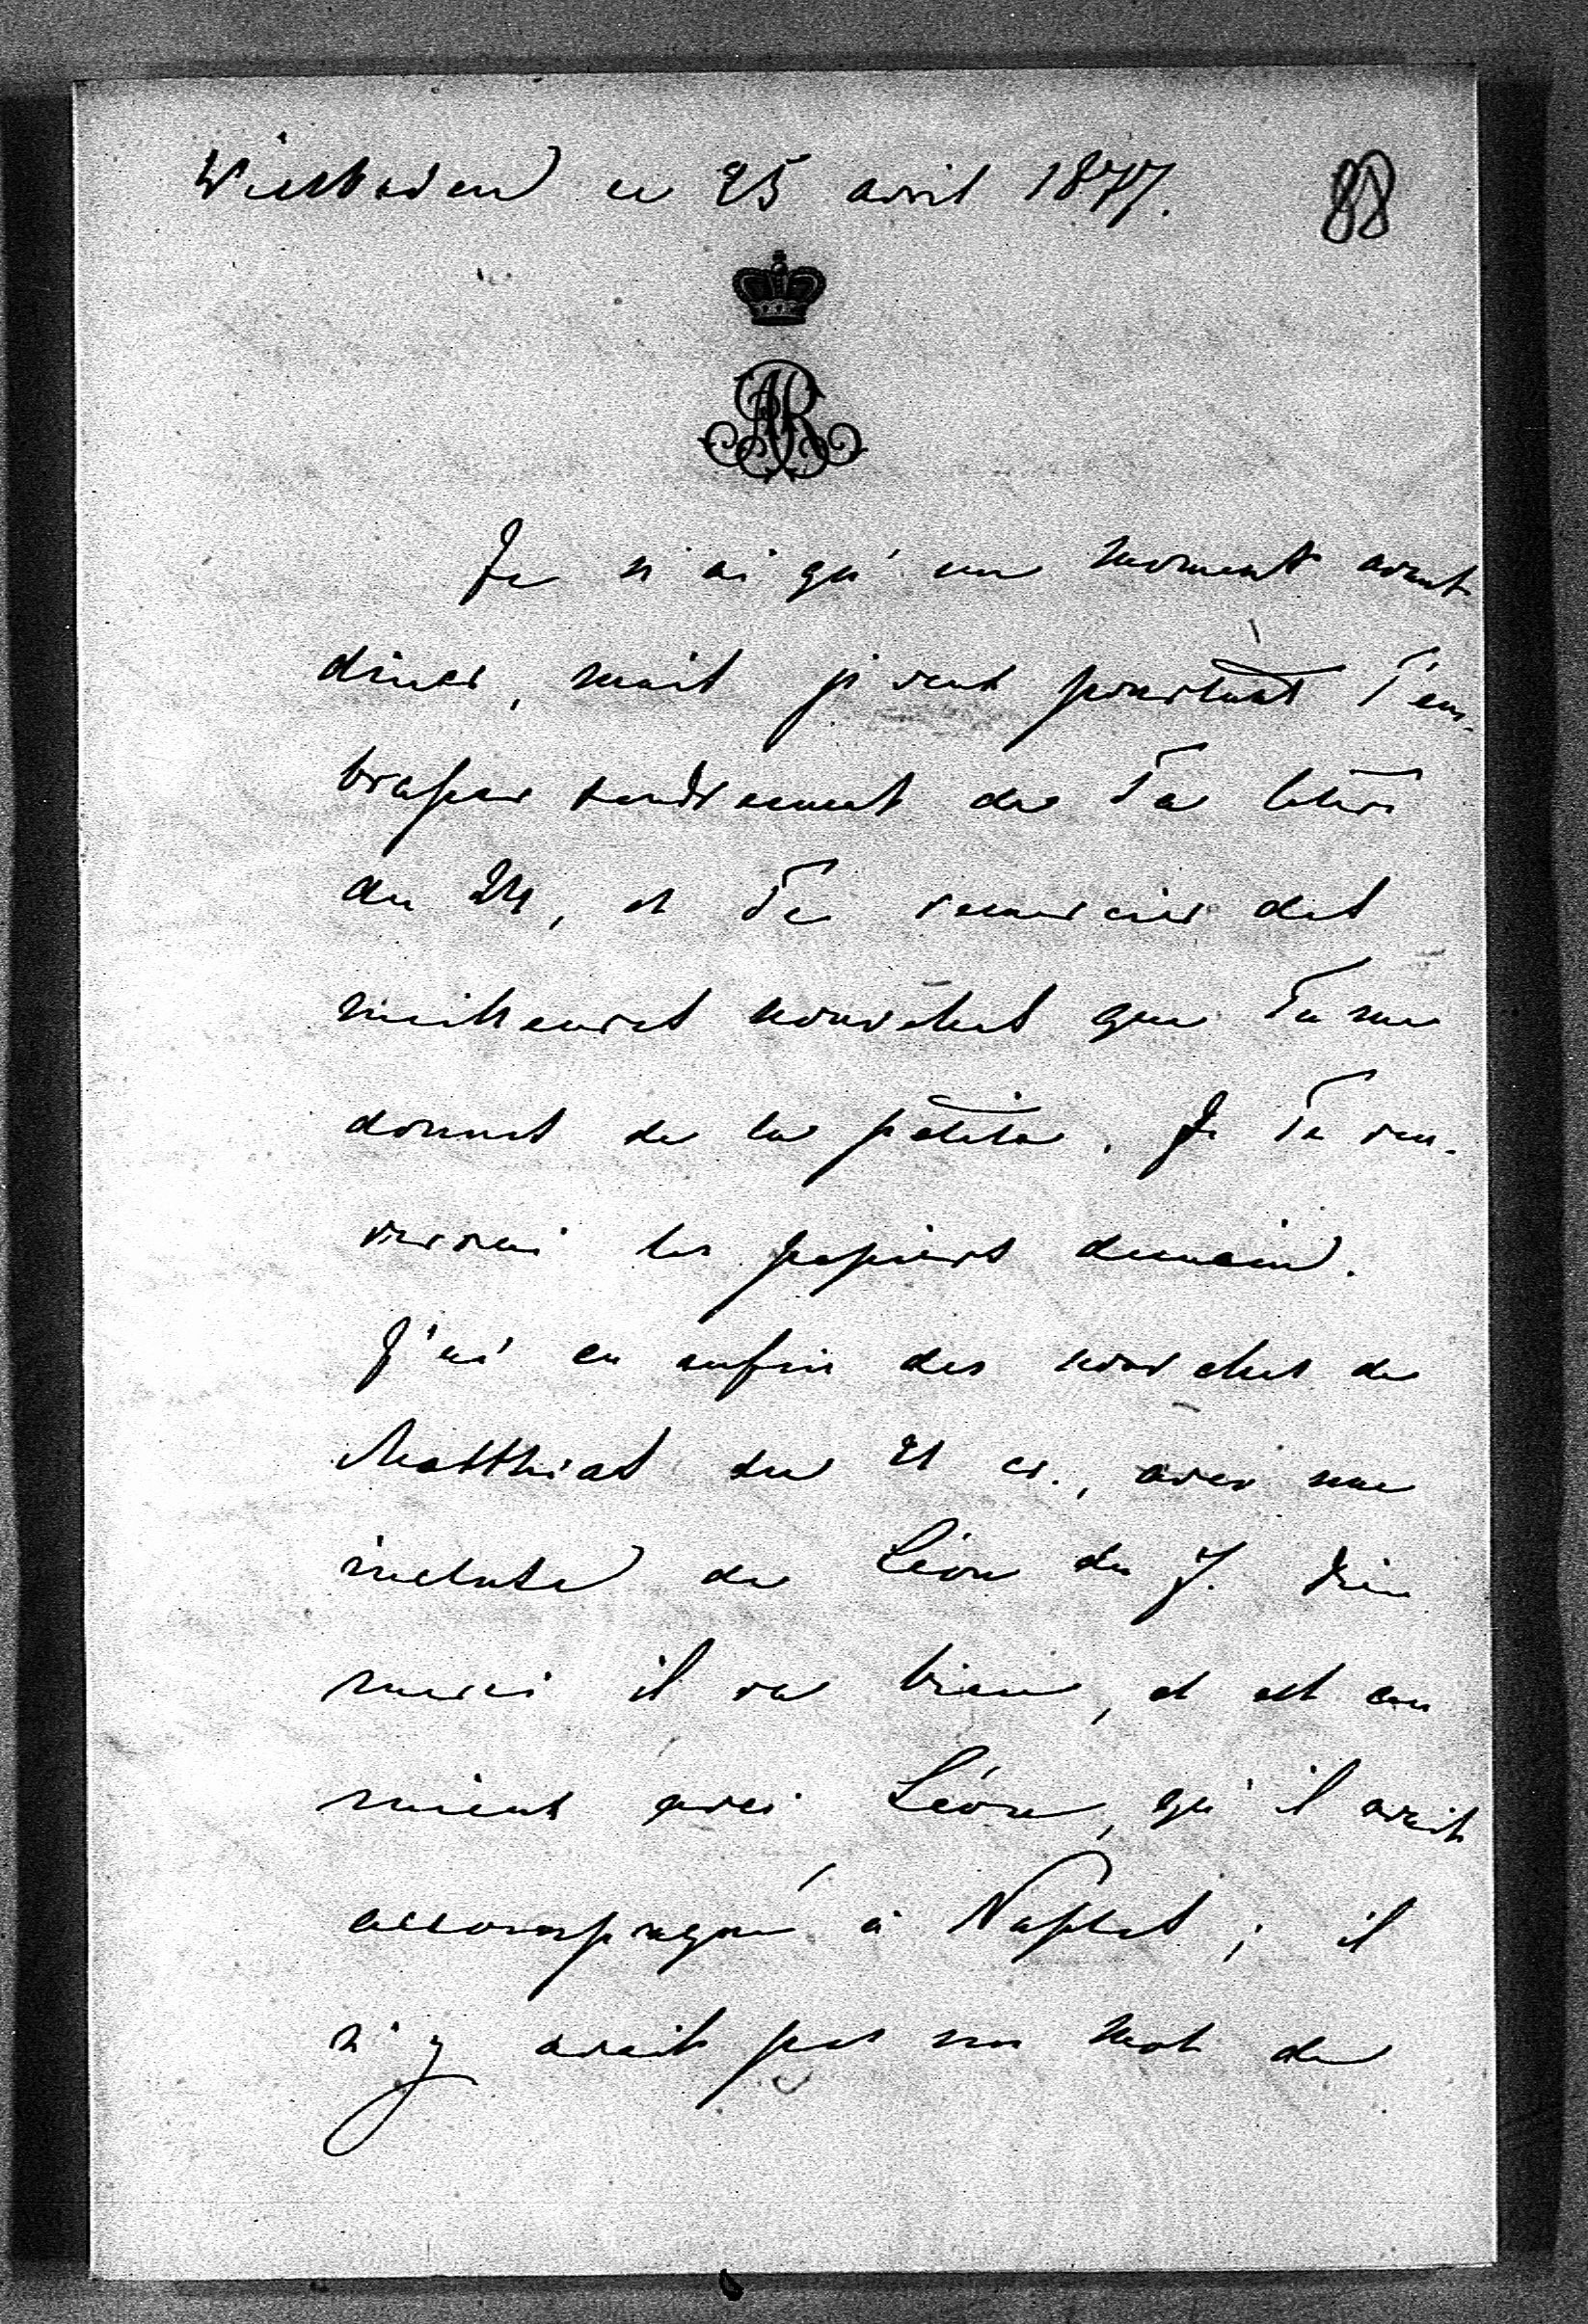 Wiesbaden ce 25 avril 1877.
88
AR
Je n'ai qu'un moment avant
diner, mais je veux pourtant T'em-
brasser tendrement de Ta lettre
du 24, et Te remercier des
meilleures nouvelles que Tu me
donnes de la petite. Je Te ren-
verrai les papiers demain.
J'ai eu enfin des nouvelles de
Matthias du 21 cr., avec une
incluse de Léon du 7. Dieu
merci il va bien, et est au
mieux avec Léon, qu'il avait
accompagné à Naples; il
n'y avait pas un mot de